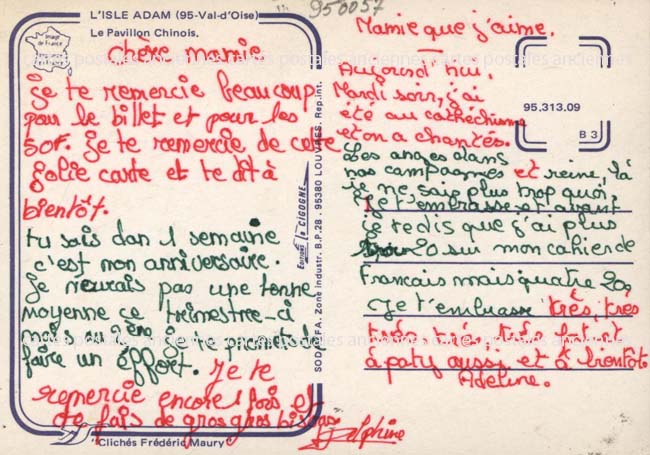 L'ISLE ADAM (95-Val-d'Oise)
Le Pavillon Chinois.
950057
chère mamie
je te remercie beaucoup
pour le billet et pour les
50F. je te remercie de cette
jolie carte et te dit à
bientôt.
tu sais dan 1 semaine
c'est mon anniversaire.
je n'aurais pas une bonne
moyenne ce trimestre-ci
mais au 2èm je te promet de
faire un éffort. je te
remercie encore 1 fois et
te fais de gros gros bisous
Delphine
Clichés Frédéric Maury
Editions la CIGOGNE
SODALFA. Zone Industr. B.P.2B. 95380 LOUVRES. Rep.int.
Mamie que j'aime.
Aujourd'hui,
Mardi soir, j'ai
été au cathéchisme
et on a chantés.
Les anges dans
nos campagnes et reine, là
je ne sais plus trop quoi.
Je t'embrasse et avant
je redis que j'ai plus
20 sur mon cahier de
Français mais quatre 20,
Je t'embrasse très, très
très très, très fort et
à paty aussi et à bientôt.
Adeline.
95.313.09
B 3
cartes postales anciennes